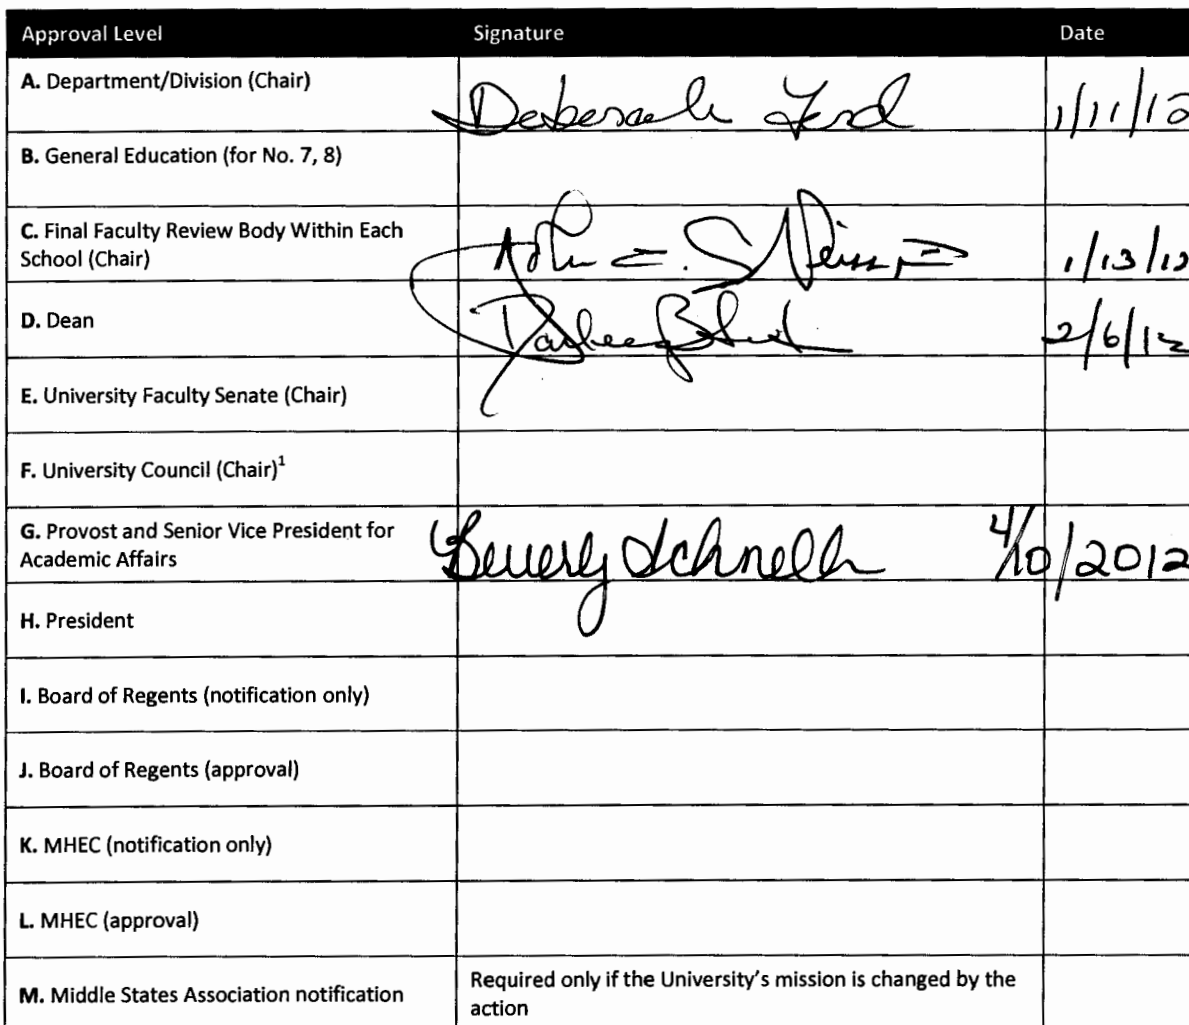 Approval Level Signature Date
A. Department/Division (Chair) Deborah Ford 1/11/12
B. General Education (for No. 7, 8)
C. Final Faculty Review Body Within Each
School (Chair) 1/13/12
D. Dean 2/6/12
E. University Faculty Senate (Chair)
F. University Council (Chair)¹
G. Provost and Senior Vice President for
Academic Affairs Beverly Schnell 4/10/2012
H. President
I. Board of Regents (notification only)
J. Board of Regents (approval)
K. MHEC (notification only)
L. MHEC (approval)
M. Middle States Association notification Required only if the University's mission is changed by the
action